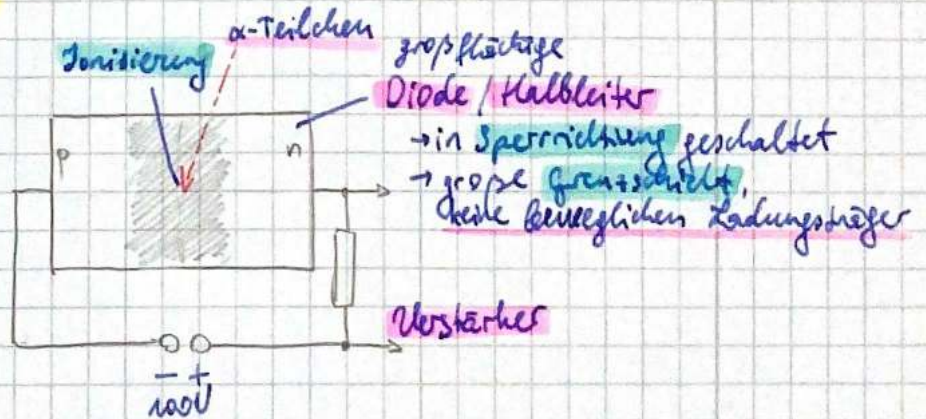 α-Teilchen
Ionisierung
großflächige
Diode / Halbleiter
→ in Sperrrichtung geschaltet
→ große Grenzschicht,
keine beweglichen Ladungsträger
p
n
Verstärker
- +
100V